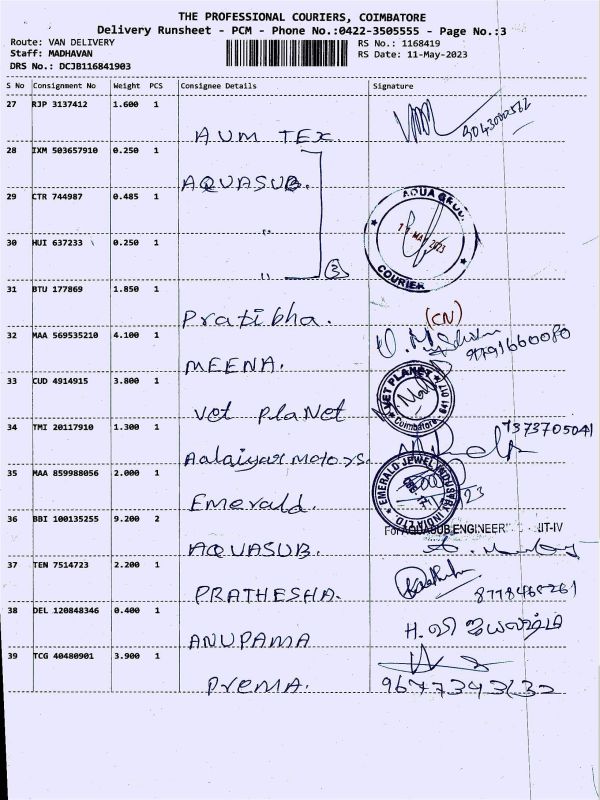 THE PROFESSIONAL COURIERS, COIMBATORE
Delivery Runsheet - PCM - Phone No.:0422-3505555 - Page No.:3
Route: VAN DELIVERY RS No.: 1168419
Staff: MADHAVAN RS Date: 11-May-2023
DRS No.: DCJB116841903
S No Consignment No Weight PCS Consignee Details Signature
27 RJP 3137412 1.600 1
AUM TEX
28 IXM 503657910 0.250 1
AQUASUB.
29 CTR 744987 0.485 1
AQUA GROUP
11 MAY 2023
COURIER
"
30 HUI 637233 0.250 1
" 3
31 BTU 177869 1.850 1
Pratibha. (CN)
32 MAA 569535210 4.100 1
MEENA. 9791660080
33 CUD 4914915 3.800 1
VET PLANET
Coimbatore
Vet PlaNet
34 TMI 20117910 1.300 1
7373705041
Aalaiyar motors.
35 MAA 859988056 2.000 1
EMERALD JEWEL INDUSTRY INDIA LTD
Emerald.
36 BBI 100135255 9.200 2
For AQUASUB ENGINEER UNIT-IV
AQUASUB.
37 TEN 7514723 2.200 1
PRATHESHA.
38 DEL 120848346 0.400 1
ANUPAMA
39 TCG 40480901 3.900 1
Prema.